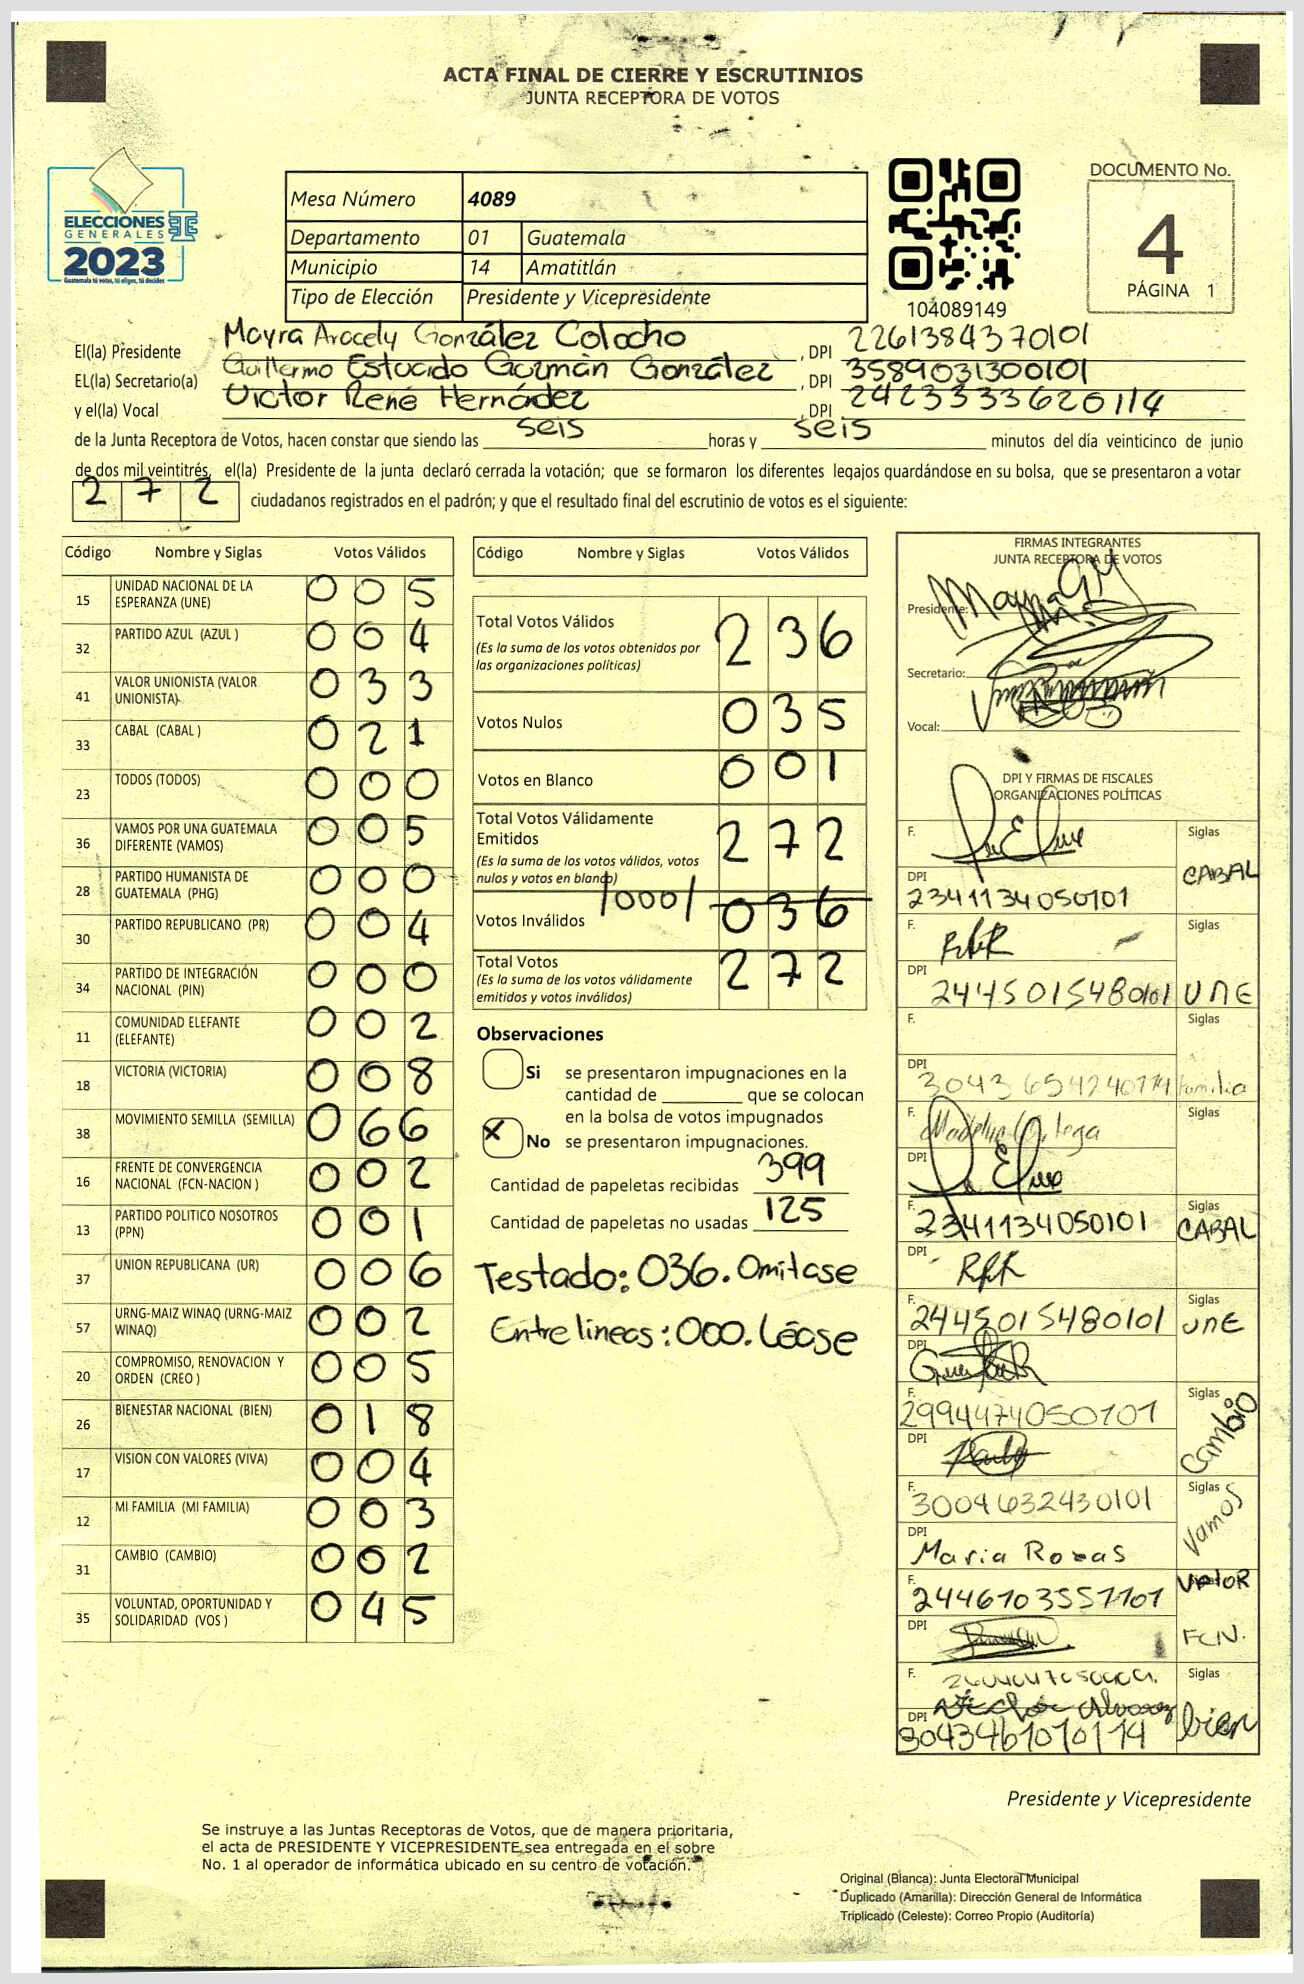 ACTA FINAL DE CIERRE Y ESCRUTINIOS
JUNTA RECEPTORA DE VOTOS
ELECCIONES
GENERALES
2023
Guatemala tú votas, tú eliges, tú decides
Mesa Número 4089
Departamento 01 Guatemala
Municipio 14 Amatitlán
Tipo de Elección Presidente y Vicepresidente
104089149
DOCUMENTO No.
4
PÁGINA 1
El(la) Presidente Mayra Aracely González Colocho, DPI 2261384370101
EL(la) Secretario(a) Guillermo Estuardo Guzmán González, DPI 3589031300101
y el(la) Vocal Victor René Hernádez, DPI 2423333620114
de la Junta Receptora de Votos, hacen constar que siendo las seis horas y seis minutos del día veinticinco de junio
de dos mil veintitrés, el(la) Presidente de la junta declaró cerrada la votación; que se formaron los diferentes legajos guardándose en su bolsa, que se presentaron a votar
272 ciudadanos registrados en el padrón; y que el resultado final del escrutinio de votos es el siguiente:
Código Nombre y Siglas Votos Válidos
15 UNIDAD NACIONAL DE LA ESPERANZA (UNE) 005
32 PARTIDO AZUL (AZUL ) 004
41 VALOR UNIONISTA (VALOR UNIONISTA) 033
33 CABAL (CABAL ) 021
23 TODOS (TODOS) 000
36 VAMOS POR UNA GUATEMALA DIFERENTE (VAMOS) 005
28 PARTIDO HUMANISTA DE GUATEMALA (PHG) 000
30 PARTIDO REPUBLICANO (PR) 004
34 PARTIDO DE INTEGRACIÓN NACIONAL (PIN) 000
11 COMUNIDAD ELEFANTE (ELEFANTE) 002
18 VICTORIA (VICTORIA) 008
38 MOVIMIENTO SEMILLA (SEMILLA) 066
16 FRENTE DE CONVERGENCIA NACIONAL (FCN-NACION ) 002
13 PARTIDO POLITICO NOSOTROS (PPN) 001
37 UNION REPUBLICANA (UR) 006
57 URNG-MAIZ WINAQ (URNG-MAIZ WINAQ) 002
20 COMPROMISO, RENOVACION Y ORDEN (CREO ) 005
26 BIENESTAR NACIONAL (BIEN) 018
17 VISION CON VALORES (VIVA) 004
12 MI FAMILIA (MI FAMILIA) 003
31 CAMBIO (CAMBIO) 002
35 VOLUNTAD, OPORTUNIDAD Y SOLIDARIDAD (VOS ) 045
Código Nombre y Siglas Votos Válidos
Total Votos Válidos 236
(Es la suma de los votos obtenidos por las organizaciones políticas)
Votos Nulos 035
Votos en Blanco 001
Total Votos Válidamente Emitidos 272
(Es la suma de los votos válidos, votos nulos y votos en blanco)
Votos Inválidos /000/ 036
Total Votos 272
(Es la suma de los votos válidamente emitidos y votos inválidos)
Observaciones
Si se presentaron impugnaciones en la
cantidad de ________ que se colocan
en la bolsa de votos impugnados
X No se presentaron impugnaciones.
Cantidad de papeletas recibidas 399
Cantidad de papeletas no usadas 125
Testado: 036. Omitase
Entre lineas: 000. Léase
FIRMAS INTEGRANTES
JUNTA RECEPTORA DE VOTOS
Presidente:
Secretario:
Vocal:
DPI Y FIRMAS DE FISCALES
ORGANIZACIONES POLÍTICAS
F. Siglas
CABAL
DPI
2341134050101
F. Siglas
DPI
2445015480101 UNE
F. Siglas
DPI
3043654240114 familia
F. Siglas
DPI
F.
2341134050101 CABAL
DPI
F. Siglas
2445015480101 UNE
DPI
F. Siglas
2994474050101 Cambio
DPI
F. Siglas
3004632430101 Vamos
DPI
Maria Rosas
F.
2446103551101 VALOR
DPI
FCN.
F. Siglas
DPI
3043461010114 bien
Presidente y Vicepresidente
Se instruye a las Juntas Receptoras de Votos, que de manera prioritaria,
el acta de PRESIDENTE Y VICEPRESIDENTE sea entregada en el sobre
No. 1 al operador de informática ubicado en su centro de votación.
Original (Blanca): Junta Electoral Municipal
Duplicado (Amarilla): Dirección General de Informática
Triplicado (Celeste): Correo Propio (Auditoría)